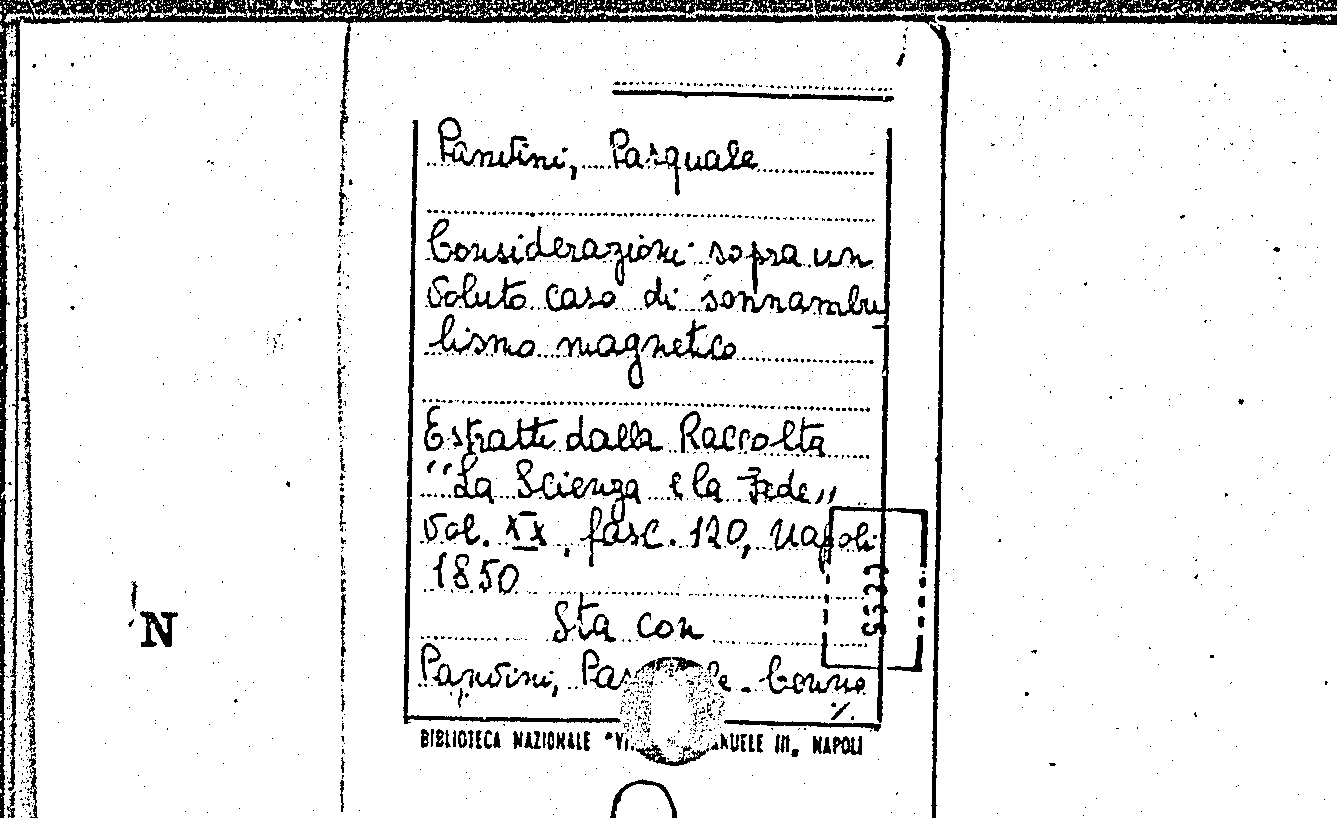 Panvini, Pasquale
Considerazioni sopra un
voluto caso di sonnambu
lismo magnetico
Estratte dalla Raccolta
"La Scienza e la Fede"
Vol. XX, fasc. 120, Napoli
1850
Sta con
Panvini, Pas le. Cenno
./.
BIBLIOTECA NAZIONALE "VI NUELE III, NAPOLI
N